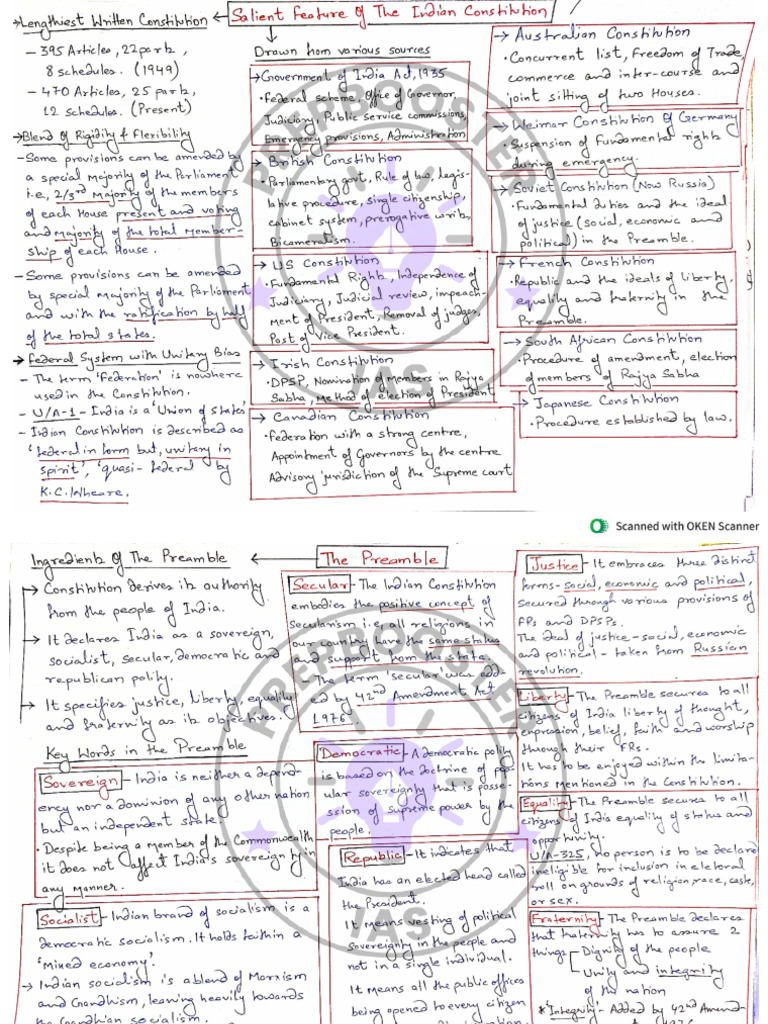 Salient Feature Of The Indian Constitution
→ Lengthiest Written Constitution
- 395 Articles, 22 parts,
8 schedules. (1949)
- 470 Articles, 25 parts,
12 schedules. (Present)
→ Blend of Rigidity & Flexibility
- Some provisions can be amended by
a special Majority of the Parliament
i.e., 2/3rd Majority of the members
of each House present and voting
and Majority of the total Member-
ship of each House.
- Some provisions can be amended
by special majority of the Parliament
and with the ratification by half
of the total states.
→ Federal System with Unitary Bias
- The term 'Federation' is nowhere
used in the Constitution.
- U/A-1 - India is a 'Union of states'
- Indian Constitution is described as
'federal in form but, unitary in
spirit', 'quasi-federal by
K.C. Wheare.
Drawn from various sources
→ Government of India Act, 1935
• Federal scheme, Office of Governor,
Judiciary, Public Service commissions,
Emergency provisions, Administration
→ British Constitution
• Parliamentary govt, Rule of law, legis-
lative procedure, single citizenship,
cabinet system, prerogative writs,
Bicameralism.
→ US Constitution
• Fundamental Rights, Independence of
Judiciary, Judicial review, impeach-
ment of President, Removal of judges,
Post of Vice President.
→ Irish Constitution
• DPSP, Nomination of Members in Rajya
Sabha, Method of election of President
→ Canadian Constitution
• Federation with a strong centre,
Appointment of Governors by the centre
Advisory jurisdiction of the Supreme court
→ Australian Constitution
• Concurrent list, Freedom of Trade
commerce and inter-course and
joint sitting of two Houses.
→ Weimar Constitution of Germany
• Suspension of Fundamental rights
during emergency.
→ Soviet Constitution (Now Russia)
• Fundamental duties and the ideal
of justice (social, economic and
political) in the Preamble.
→ French Constitution
• Republic and the ideals of liberty,
equality and fraternity in the
Preamble.
→ South African Constitution
• Procedure of amendment, election
of members of Rajya Sabha
→ Japanese Constitution
• Procedure established by law.
PREPBOOSTER
IAS
Scanned with OKEN Scanner
The Preamble
Ingredients Of The Preamble
→ Constitution derives its authority
from the people of India.
→ It declares India as a sovereign,
socialist, secular, democratic and
republican polity.
→ It specifies justice, liberty, equality
and fraternity as its objectives.
Key Words in the Preamble
Sovereign - India is neither a depend-
ency nor a dominion of any other nation
but an independent state.
• Despite being a member of the Commonwealth
it does not affect India's sovereignty in
any manner.
Socialist - Indian brand of socialism is a
democratic socialism. It holds faith in a
'Mixed economy'.
→ Indian socialism is a blend of Marxism
and Gandhism, leaning heavily towards
the Gandhian socialism.
Secular - The Indian Constitution
embodies the positive concept of
secularism i.e, all religions in
our country have the same status
and support from the state.
- The term 'secular' was add-
ed by 42nd Amendment Act
1976.
Democratic - A democratic polity
is based on the doctrine of pop-
ular sovereignty that is posse-
ssion of Supreme power by the
people.
Republic - It indicates that
India has an elected head called
the President.
It means vesting of political
sovereignty in the people and
not in a single individual.
It means all the public offices
being opened to every citizen
Justice - It embraces three distinct
forms - social, economic and political,
secured through various provisions of
FRs and DPSPs.
The ideal of justice - social, economic
and political - taken from Russian
revolution.
Liberty - The Preamble secures to all
citizens of India liberty of thought,
expression, belief, faith and worship
through their FRs.
It has to be enjoyed within the limita-
tions mentioned in the Constitution.
Equality - The Preamble secures to all
citizens of India equality of status and
opportunity.
U/A-325, No person is to be declared
ineligible for inclusion in electoral
roll on grounds of religion, race, caste,
or sex.
Fraternity - The Preamble declares
that fraternity has to assure 2
things - Dignity of the people
Unity and integrity
of the nation
* 'Integrity' - Added by 42nd Amend-
PREPBOOSTER
IAS